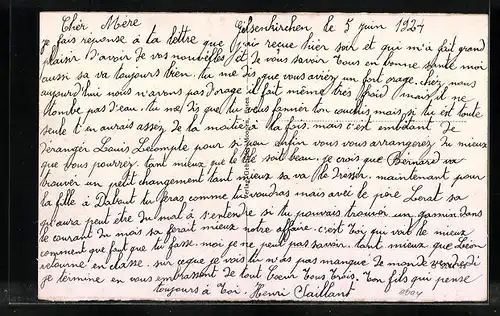 Cher Mère Gelsenkirchen le 5 juin 1924
je fais réponse à la lettre que j'ais reçue hier soir et qui m'a fait grand
plaisir d'avoir de vos nouvelles et de vous savoir tous en bonne santé moi
aussi sa va toujours bien. tu me dis que vous aviez un fort orage. chez nous
aujourd'hui nous n'avons pas d'orage il fait même très froid mais il ne
tombe pas d'eau. tu me dis que tu veus fanner ton couchis mais si tu est toute
seule t'en aurais assez de la moitié à la fois. mais c'est embêtant de
déranger Louis Lecomple pour si peu. Enfin vous vous arrangerez du mieux
que vous pourrez. tant mieux que le blé soit beau. je crois que Bernard va
trouver un petit changement tant mieux sa va le dresser. maintenant pour
la fille à Dabout tu feras comme tu voudras mais avec le père Lorat sa
qu'aura peut être du mal à s'entendre si tu pouvais trouver un gamin dans
le courant du mois sa ferait mieux notre affaire. c'est toi qui voit le mieux
comment que faut que tu fasse. moi je ne peut pas savoir. tant mieux que Léon
retourne en classe. sur ceque je vois tu n'as pas manque de monde vendredi
je termine en vous embrassent de tout Coeur tous trois. ton fils qui pense
toujours à toi Henri Saillant